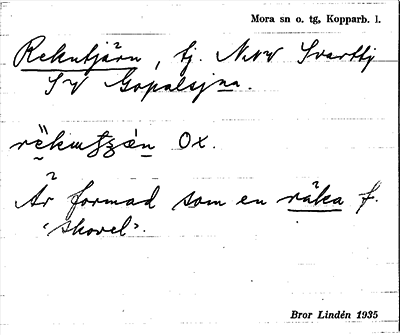 Mora sn o. tg, Kopparb. l.
Rekutjärn, tj. NNV Svarttj
SV Gopalsjna.
Ox.
Är formad som en räka f.
'skovel'.
Bror Lindén 1935